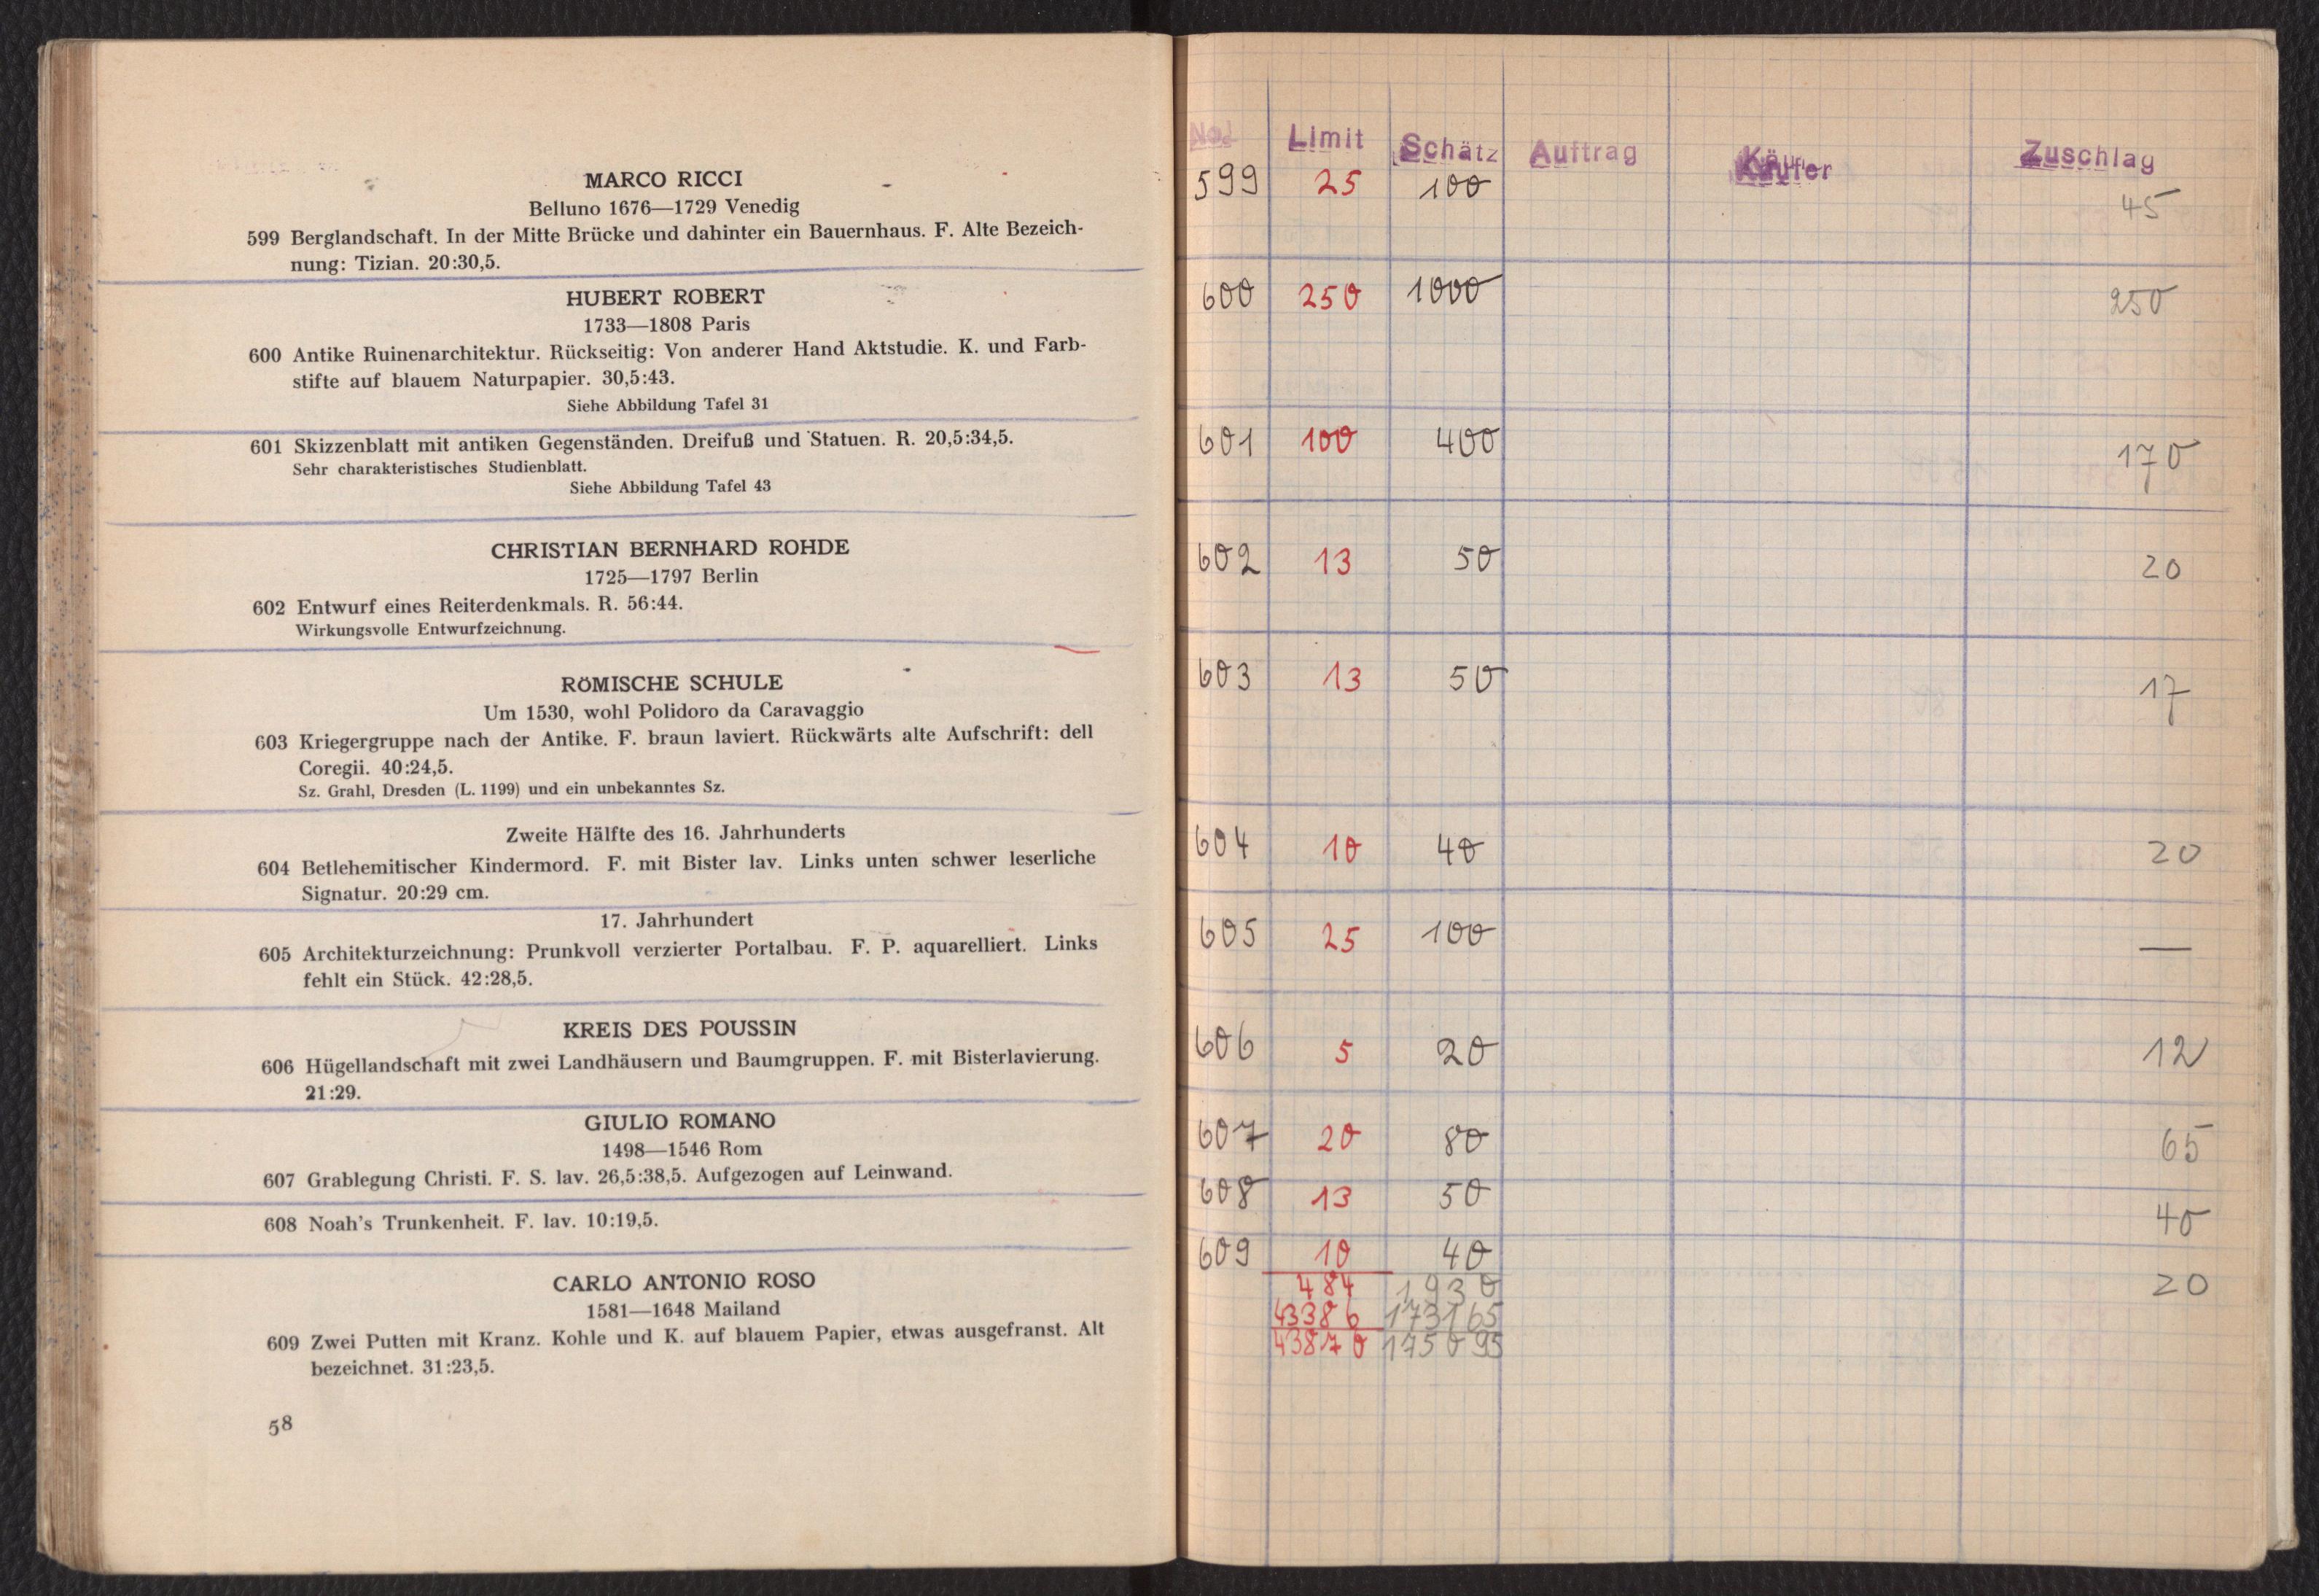 MARCO RICCI
Belluno 1676—1729 Venedig
599 Berglandschaft. In der Mitte Brücke und dahinter ein Bauernhaus. F. Alte Bezeich-
nung: Tizian. 20:30,5.
HUBERT ROBERT
1733—1808 Paris
600 Antike Ruinenarchitektur. Rückseitig: Von anderer Hand Aktstudie. K. und Farb-
stifte auf blauem Naturpapier. 30,5:43.
Siehe Abbildung Tafel 31
601 Skizzenblatt mit antiken Gegenständen. Dreifuß und Statuen. R. 20,5:34,5.
Sehr charakteristisches Studienblatt.
Siehe Abbildung Tafel 43
CHRISTIAN BERNHARD ROHDE
1725—1797 Berlin
602 Entwurf eines Reiterdenkmals. R. 56:44.
Wirkungsvolle Entwurfzeichnung.
RÖMISCHE SCHULE
Um 1530, wohl Polidoro da Caravaggio
603 Kriegergruppe nach der Antike. F. braun laviert. Rückwärts alte Aufschrift: dell
Coregii. 40:24,5.
Sz. Grahl, Dresden (L. 1199) und ein unbekanntes Sz.
Zweite Hälfte des 16. Jahrhunderts
604 Betlehemitischer Kindermord. F. mit Bister lav. Links unten schwer leserliche
Signatur. 20:29 cm.
17. Jahrhundert
605 Architekturzeichnung: Prunkvoll verzierter Portalbau. F. P. aquarelliert. Links
fehlt ein Stück. 42:28,5.
KREIS DES POUSSIN
606 Hügellandschaft mit zwei Landhäusern und Baumgruppen. F. mit Bisterlavierung.
21:29.
GIULIO ROMANO
1498—1546 Rom
607 Grablegung Christi. F. S. lav. 26,5:38,5. Aufgezogen auf Leinwand.
608 Noah's Trunkenheit. F. lav. 10:19,5.
CARLO ANTONIO ROSO
1581—1648 Mailand
609 Zwei Putten mit Kranz. Kohle und K. auf blauem Papier, etwas ausgefranst. Alt
bezeichnet. 31:23,5.
58
No. Limit Schätz Auftrag Käufer Zuschlag
599 25 100 45
600 250 1000 250
601 100 400 170
602 13 50 20
603 13 50 17
604 10 40 20
605 25 100 —
606 5 20 12
607 20 80 65
608 13 50 40
609 10 40 20
484 1930
43386 173165
43870 175095